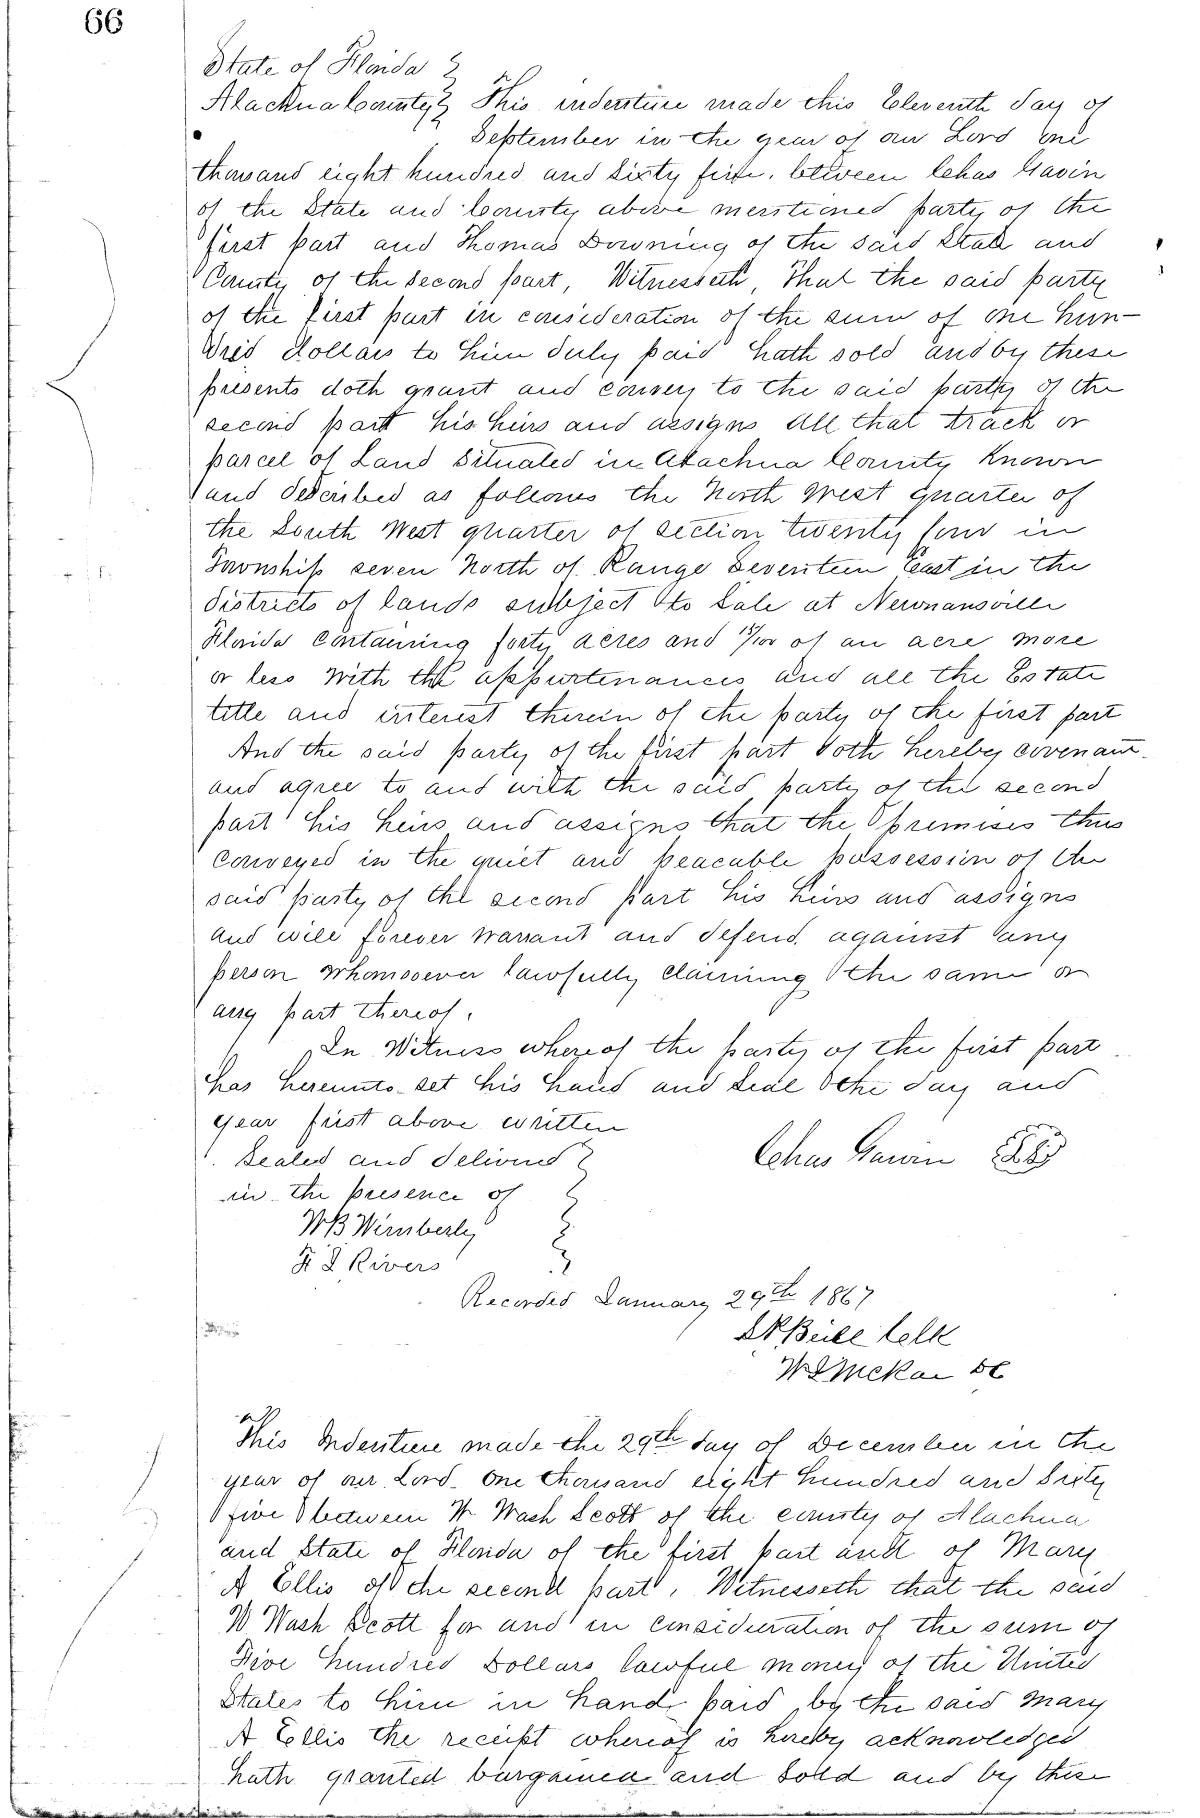 66
State of Florida
Alachua County This indenture made this Eleventh day of
September in the year of our Lord one
thousand eight hundred and Sixty five. between Chas Gavin
of the State and County above mentioned party of the
first part and Thomas Downing of the said State and
County of the second part, Witnesseth, That the said party
of the first part in consideration of the sum of one hun-
dred dollars to him duly paid hath sold and by these
presents doth grant and convey to the said party of the
second part his heirs and assigns all that track or
parcel of Land situated in Alachua County Known
and described as follows the North West quarter of
the South West quarter of section twenty four in
Township seven North of Range Seventeen East in the
districts of lands subject to Sale at Newnansville
Florida Containing forty acres and /100 of an acre more
or less with the appurtenances and all the Estate
title and interest therein of the party of the first part
And the said party of the first part doth hereby covenant
and agree to and with the said party of the second
part his heirs and assigns that the premises thus
Conveyed in the quiet and peacable possession of the
said party of the second part his heirs and assigns
and will forever warrant and defend against any
person whomsoever lawfully claiming the same or
any part thereof.
In Witness whereof the party of the first part
has hereunto set his hand and seal the day and
year first above written
Sealed and delivered Chas Gavin
in the presence of
WB Wimberly
Rivers
Recorded January 29th 1867
Clk
DC
This Indenture made the 29th day of December in the
year of our Lord One thousand eight hundred and Sixty
five between W Wash Scott of the county of Alachua
and State of Florida of the first part and of Mary
A Ellis of the second part, Witnesseth that the said
W Wash Scott for and in consideration of the sum of
Five hundred Dollars lawful money of the United
States to him in hand paid by the said Mary
A Ellis the receipt whereof is hereby acknowledged
hath granted bargained and Sold and by these